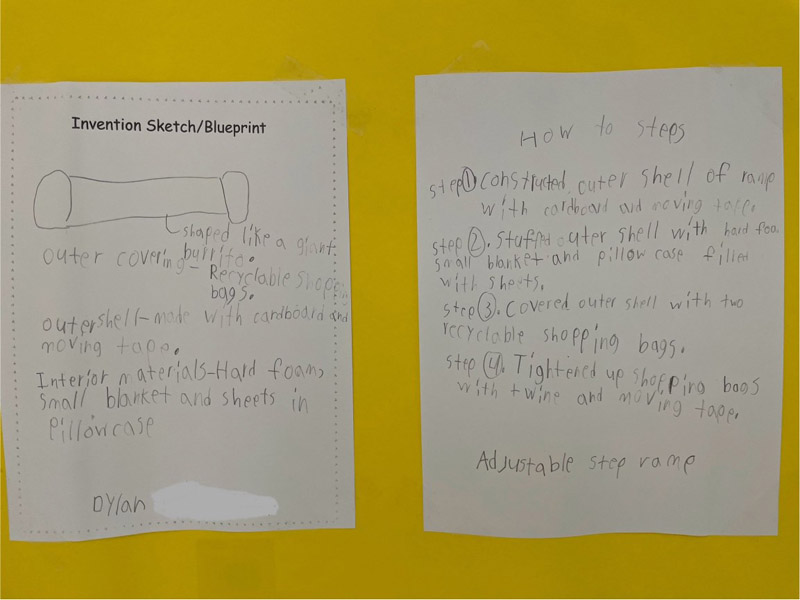 Invention Sketch/Blueprint
shaped like a giant
burrito.
outer covering- Recyclable shopping
bags.
outershell-made with cardboard and
moving tape.
Interior materials-Hard foam,
small blanket and sheets in
pillowcase
Dylan
How to steps
step 1 constructed outer shell of ramp
with cardboard and moving tape.
step 2. Stuffed outer shell with hard foa
small blanket and pillow case filled
with sheets.
step 3. Covered outer shell with two
recyclable shopping bags.
step 4. Tightened up shopping bags
with twine and moving tape.
Adjustable step ramp